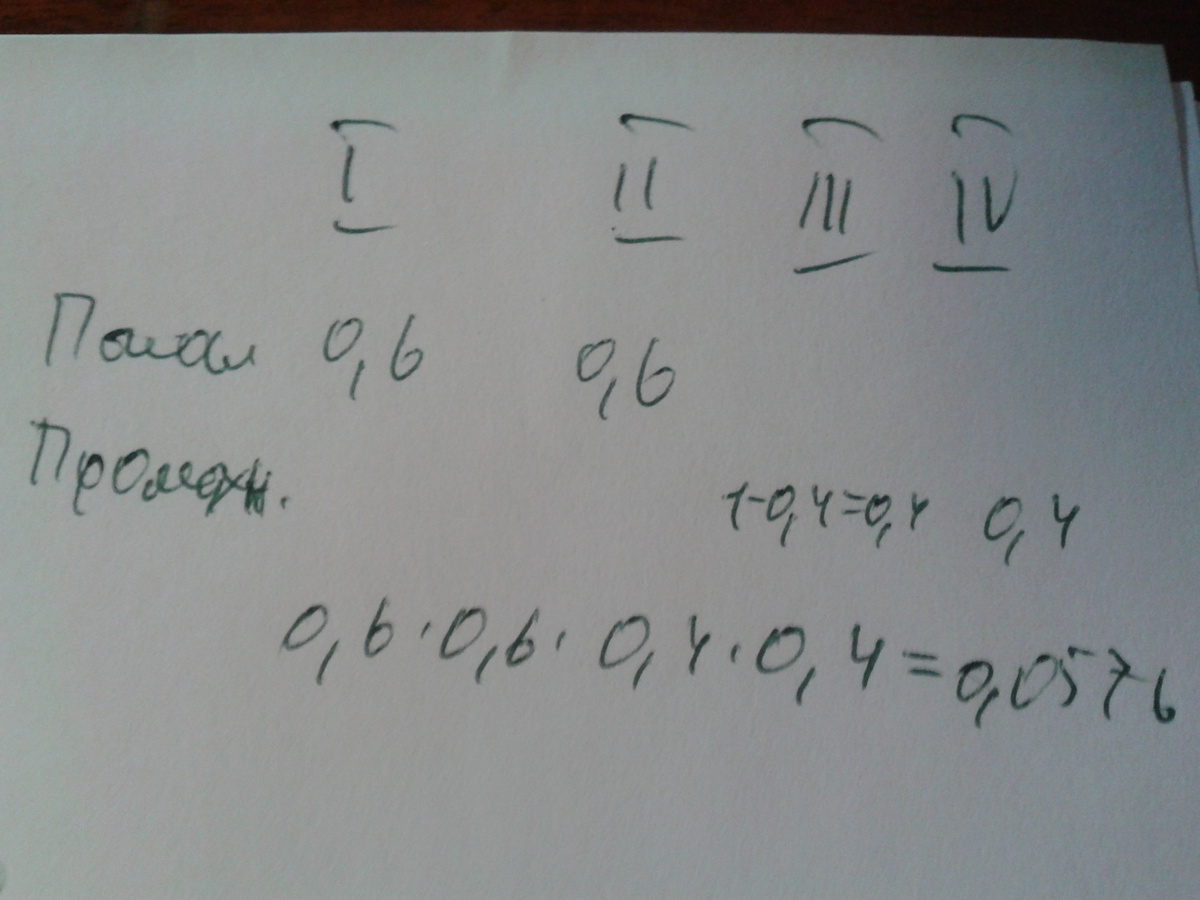 I II III IV
Попал 0,6 0,6
Промахн.
1-0,4=0,4 0,4
0,6·0,6·0,4·0,4=0,0576